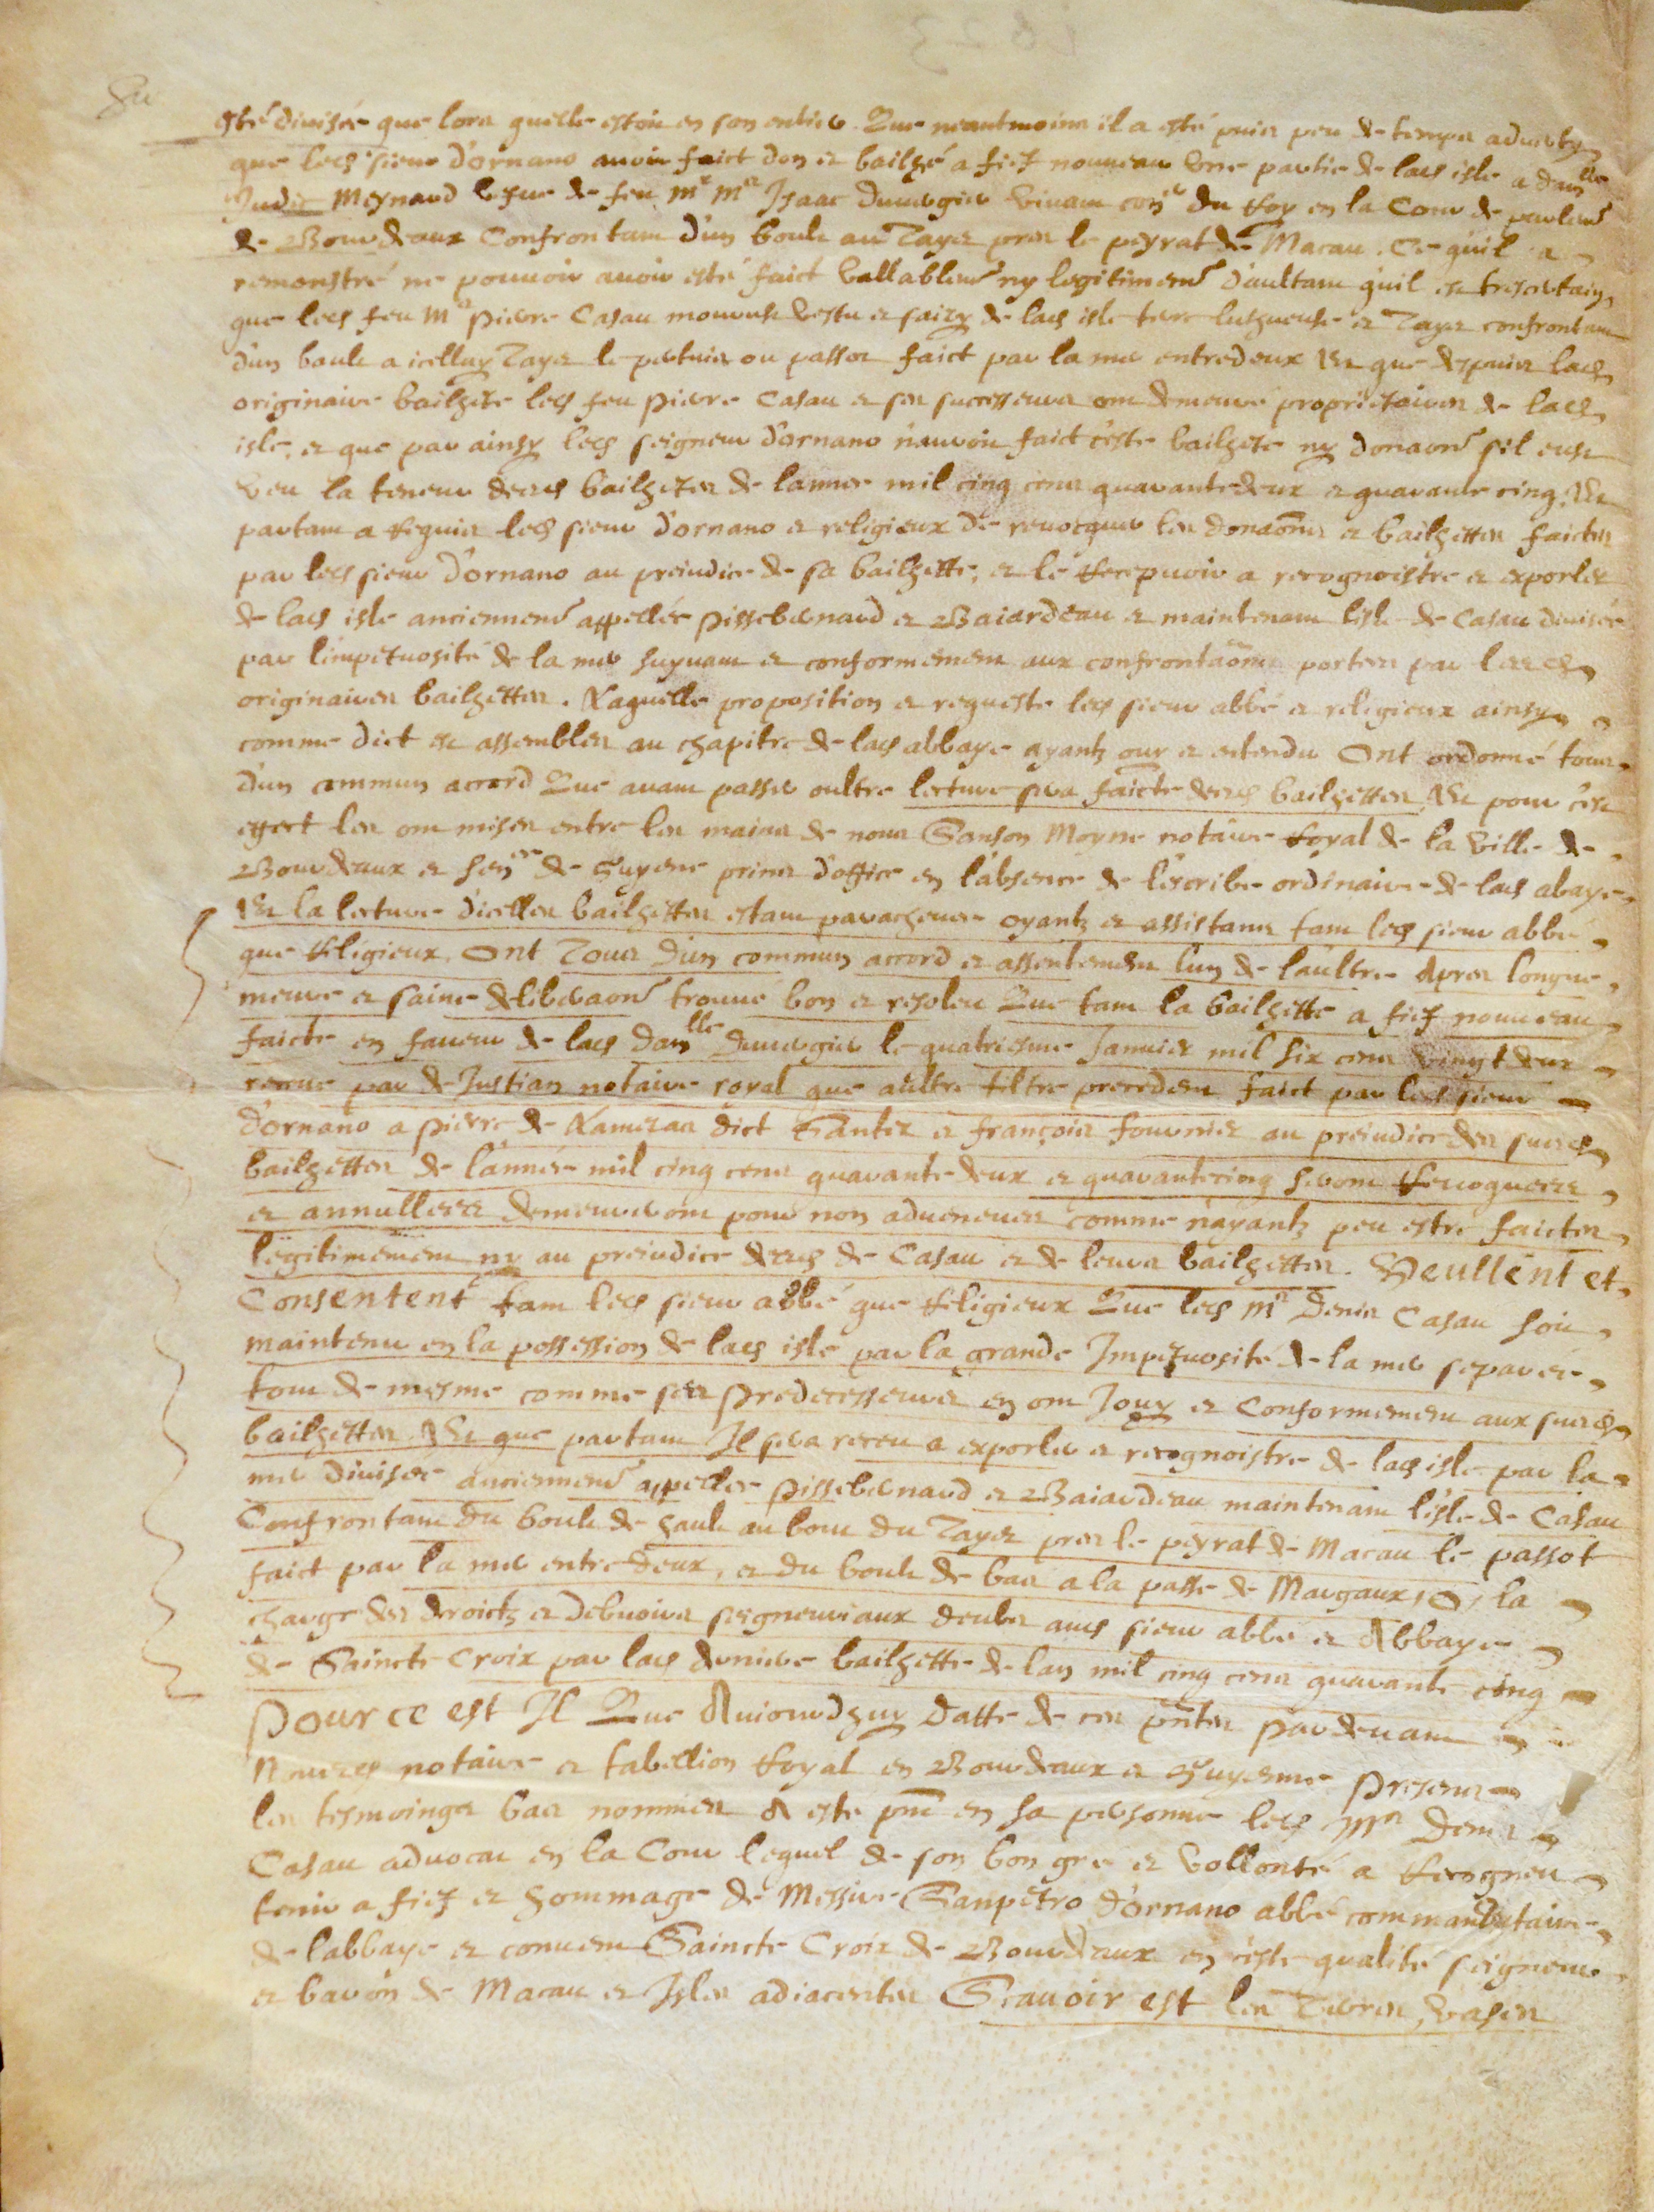 esté divisée que lors quelle estoit en son entier. Que neantmoins il a esté puis peu de temps adverty
que leds sieur d'ornano avoit faict don et bailhé a fief nouveau une partie de lads isle a dam<sup>lle</sup>
Judic Meynard vefve de feu m<sup>r</sup> m<sup>e</sup> Isaac Duvergier vivant con<sup>er</sup> du Roy en la Cour de parlem<sup>t</sup>
de Bourdeaux Confrontant d'un boult au Tayet pres le peyrat de Macau. Ce quil a
remonstré ne pouvoir avoir esté faict vallablem<sup>t</sup> ny legitimem<sup>t</sup> d'aultant quil est trescertain
que leds feu m<sup>e</sup> Pierre Casau mourust vestu et saizy de lads isle et Tayet confrontant
d'un boult a icelluy Tayet le pertuis ou passot faict par la mer entredeux Et que despuis lads
originaire bailhete leds feu pierre Casau et ses successeurs ont demeuré proprietaires de lads
isle, et que par ainsy leds seigneur d'ornano n'avoit faict ceste bailhete ny donaon sil eust
veu la teneur desds bailhetes de lannee mil cinq cens quarante deux et quarante cinq. Et
partant a Requis leds sieur d'ornano et religieux de revocquer les donaons et bailhettes faictes
par leds sieur d'ornano au preiudice de sa bailhette, et le Recepvoir a recognoistre et exporler
de lads isle anciennem<sup>t</sup> appellée pissebernard et Baiardeau et maintenant lisle de Casau divisée
par limpetuosité de la mer suyvant et conformement aux confrontaons portees par lesds
originaires bailhettes. Laquelle proposition et requeste leds sieur abbé et religieux ainsy
comme dict est assembles au chapitre de lads abbaye ayantz ouy et entendu Ont ordonné tous
d'un commun accord Que avant passer oultre lecture sera faicte desds bailhettes, Et pour cest
effect les ont mises entre les mains de nous Sanson Moyne notaire Royal de la ville de
Bourdeaux et sen<sup>cee</sup> de Guyene prins d'office en l'absence de l'escribe ordinaire de lads abaye.
Et la lecture d'icelles bailhettes estant parachevee oyantz et assistans tant leds sieur abbé
que Religieux, Ont Tous d'un commun accord et assentement lun de l'aultre Apres longue
meure et saine deliberaon trouvé bon et resoleu Que tant la bailhette a fief nouveau
faicte en faveur de lads dam<sup>lle</sup> Duvergier le quatriesme Janvier mil six cens vingt deux
receue par de Justian notaire royal que aultre tiltre precedent faict par leds sieur
d'ornano a pierre de Lameras dict Santez et françois fournier au preiudice des susds
bailhettes de l'année mil cinq cens quarante deux et quarantecinq seront Revoquees
et annullees demeureront pour non advenues comme n'ayantz peu estre faictes
legitimement ny au preiudice desds de Casau et de leurs bailhettes. Veullent et
Consentent tant leds sieur abbé que Religieux Que leds m<sup>e</sup> Denis Casau soit
maintenu en la possession de lads isle par la grande Impetuosité de la mer separée
tout de mesme comme ses predecesseurs en ont Jouy et Conformement aux susds
bailhettes Et que partant Il sera receu a exporler et recognoistre de lads isle par la
mer divisée anciennem<sup>t</sup> appellee pissebernard et Baiardeau maintenant l'isle de Casau
Confrontant du boult de hault au bout du Tayet pres le peyrat de Macau le passot
faict par la mer entre deux, et du boult de bas a la passe de Margaux, O, la
charge des droictz et debvoirs seigneuriaux deubes auds sieur abbé et Abbaye
de Saincte Croix par lads derniere bailhette de lan mil cinq cens quarante cinq
Pource est Il Que Auiourdhuy datte de ces pntes pardevant
Nousds notaire et tabellion Royal en Bourdeaux et Guyenne presens
les tesmoingz bas nommes A esté pnt en sa personne leds M<sup>e</sup> Denis
Casau advocat en la Cour lequel de son bon gre et vollonté a Recogneu
tenir a fief et hommage de Messire Sanpetro d'ornano abbé commandataire
de labbaye et convent Saincte Croix de Bourdeaux en ceste qualité seigneur
et baron de Macau et Isles adiacentes Scavoir est les Terres, vases